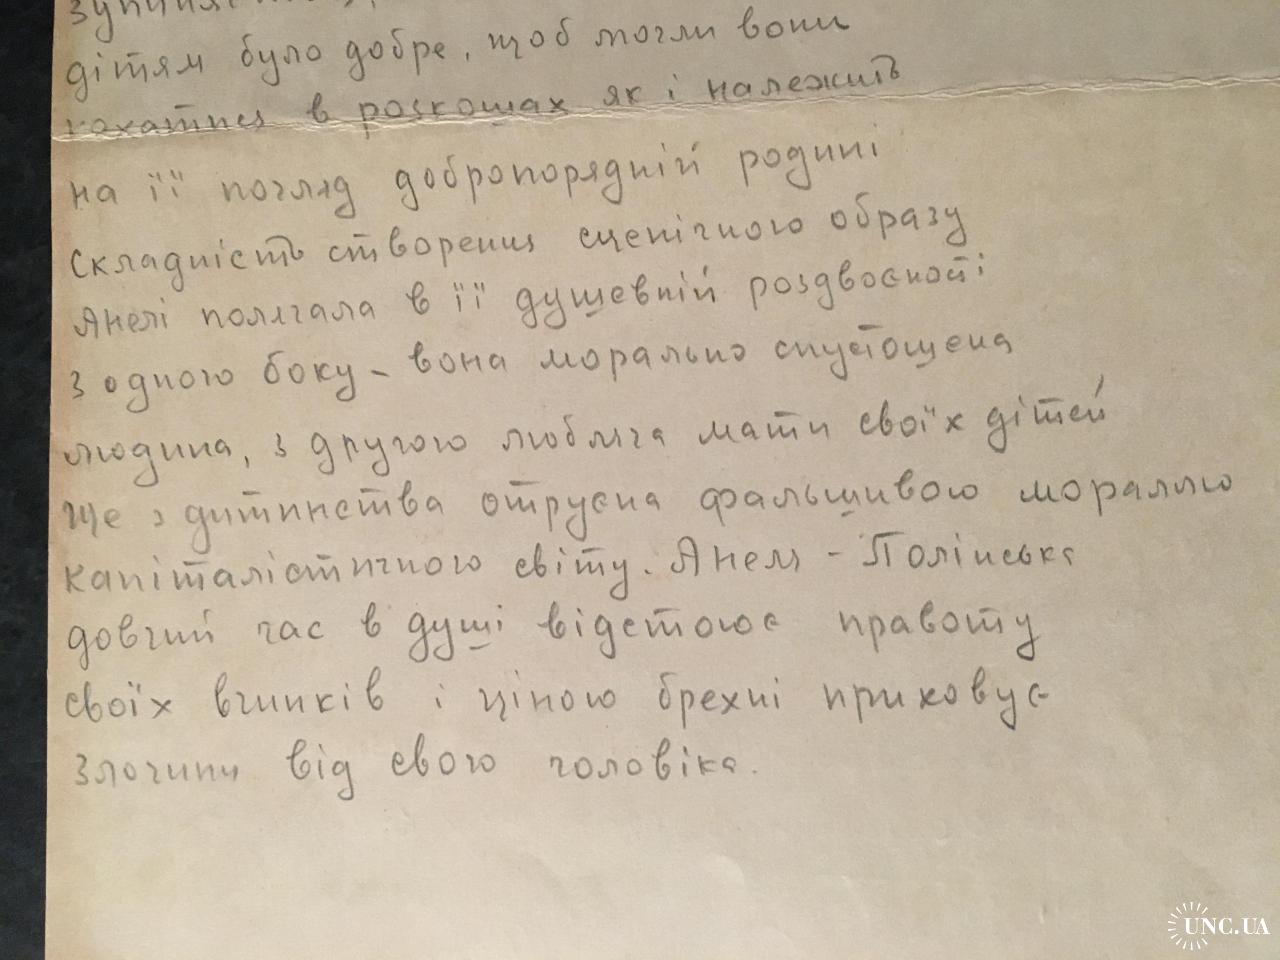 дітям було добре, щоб могли вони
кохатися в розкошах як і належить
на її погляд добропорядній родині
Складність створення сценічного образу
Анелі полягала в її душевній роздвоєності
з одного боку - вона морально спустошена
людина, з другого любляча мати своїх дітей
Ще з дитинства отруєна фальшивою мораллю
капіталістичного світу. Анеля - Полінська
довгий час в душі відстоює правоту
своїх вчинків і ціною брехні приховує
злочини від свого чоловіка.
UNC.UA